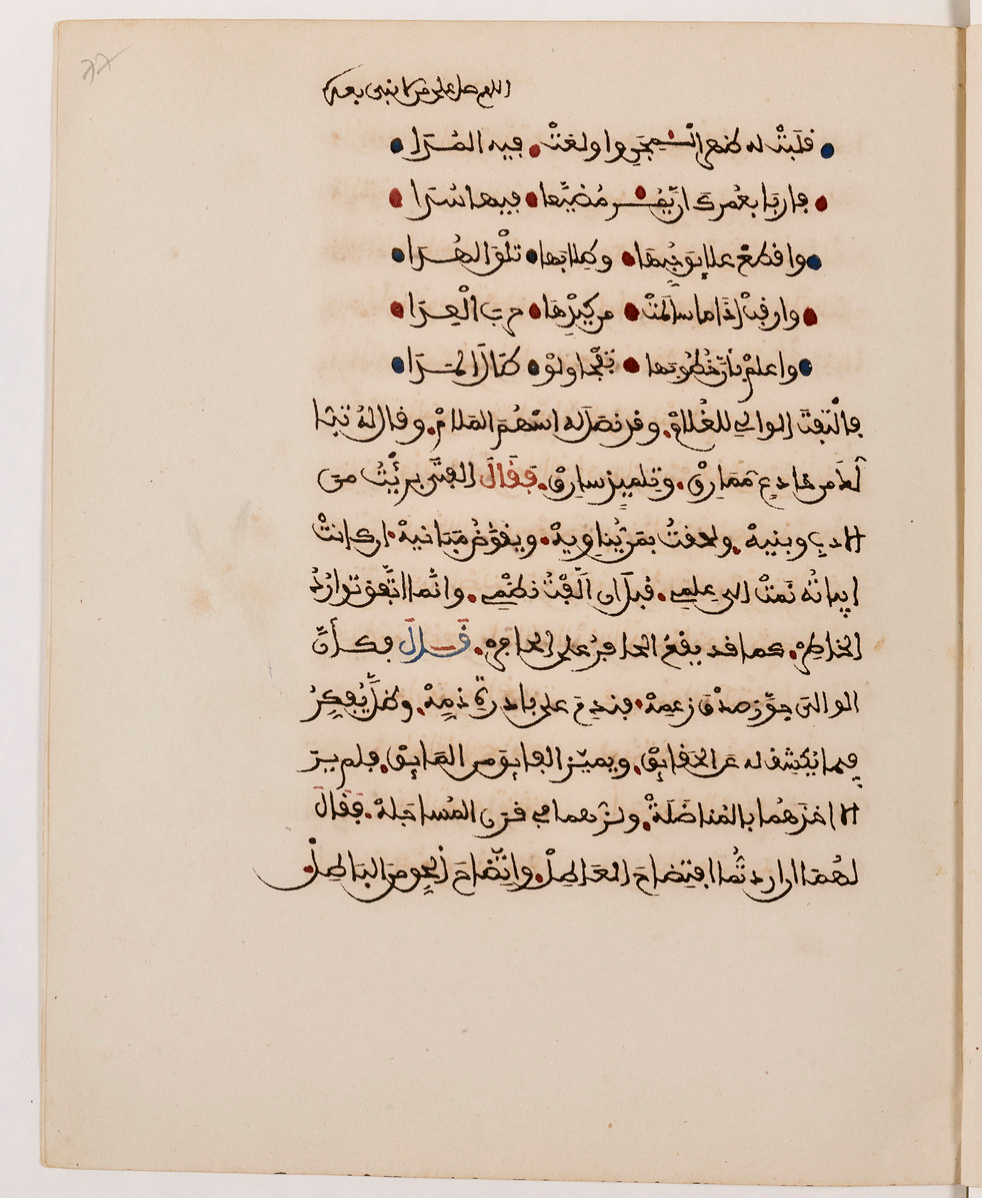 اللهم صل على من لا نبي بعده
قلبت له ظهر المجن وأولغت فيه المدا
فاربأ بعمرك ان يمر مضيعا فيها سدا
واقطع علائق حبها وطلابها تلق الهدا
وارقب إذا ما سالمت من كيدها حرب العدا
واعلم بأن خطوبها تفجا ولو طال المدا
فالتفت الوالي للغلام. وقد نصل له اسهم الملام. وقال له تبا
لك من خادع ممارق. وتلميذ سارق. فقال الفتى برئت من
الادب وبنيه. ولحقت بمن يناويه. ويقوض مبانيه. ان كانت
ابياته نمت الى علمي. قبل ان الفت نظمي. وانما اتفق توارد
الخاطر. كما قد يقع الحافر على الحافر. قال فكأن
الوالي جوز صدق زعمه. فندم على بادرة ذمه. وظل يفكر
فيما يكشف له عن الحقائق. ويميز الفائق من المائق. فلم ير
الا اخذهما بالمناضلة. ولزهما في قرن المساجلة. فقال
لهما ان اردتما افتضاح العاطل. واتضاح الحق من الباطل.